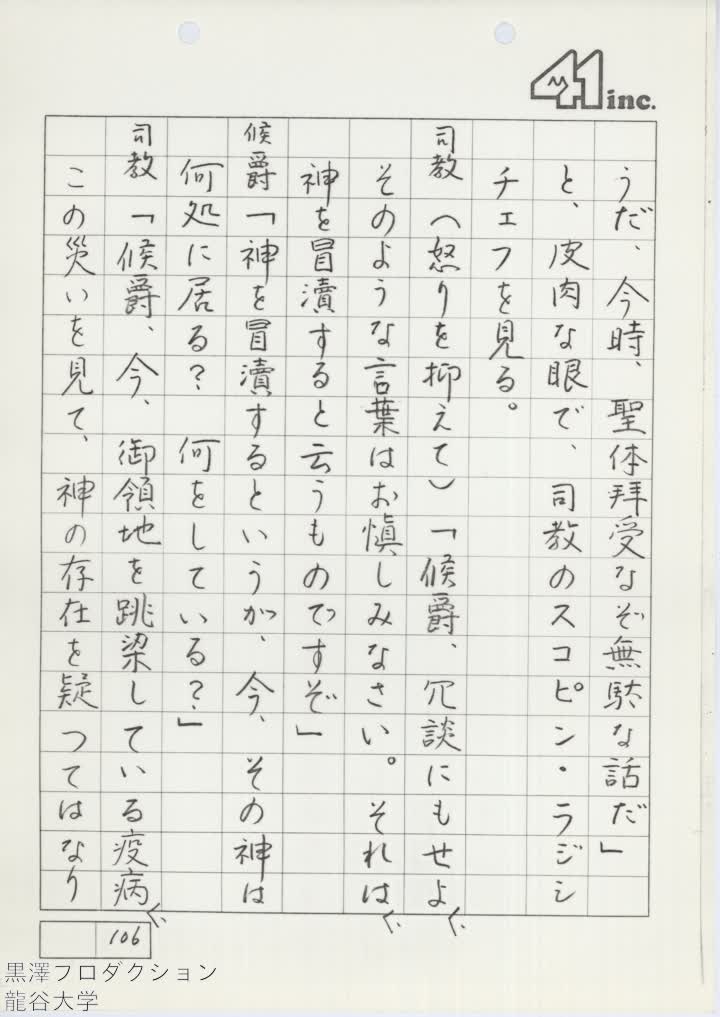 41 inc.
うだ、今時、聖体拝受なぞ無駄な話だ」
と、皮肉な眼で、司教のスコピン・ラジシ
チェフを見る。
司教（怒りを抑えて）「候爵、冗談にもせよ
そのような言葉はお慎しみなさい。それは
神を冒瀆すると云うものですぞ」
候爵「神を冒瀆するというが、今、その神は
何処に居る？何をしている？」
司教「候爵、今、御領地を跳梁している疫病
この災いを見て、神の存在を疑つてはなり
106
黒澤プロダクション
龍谷大学